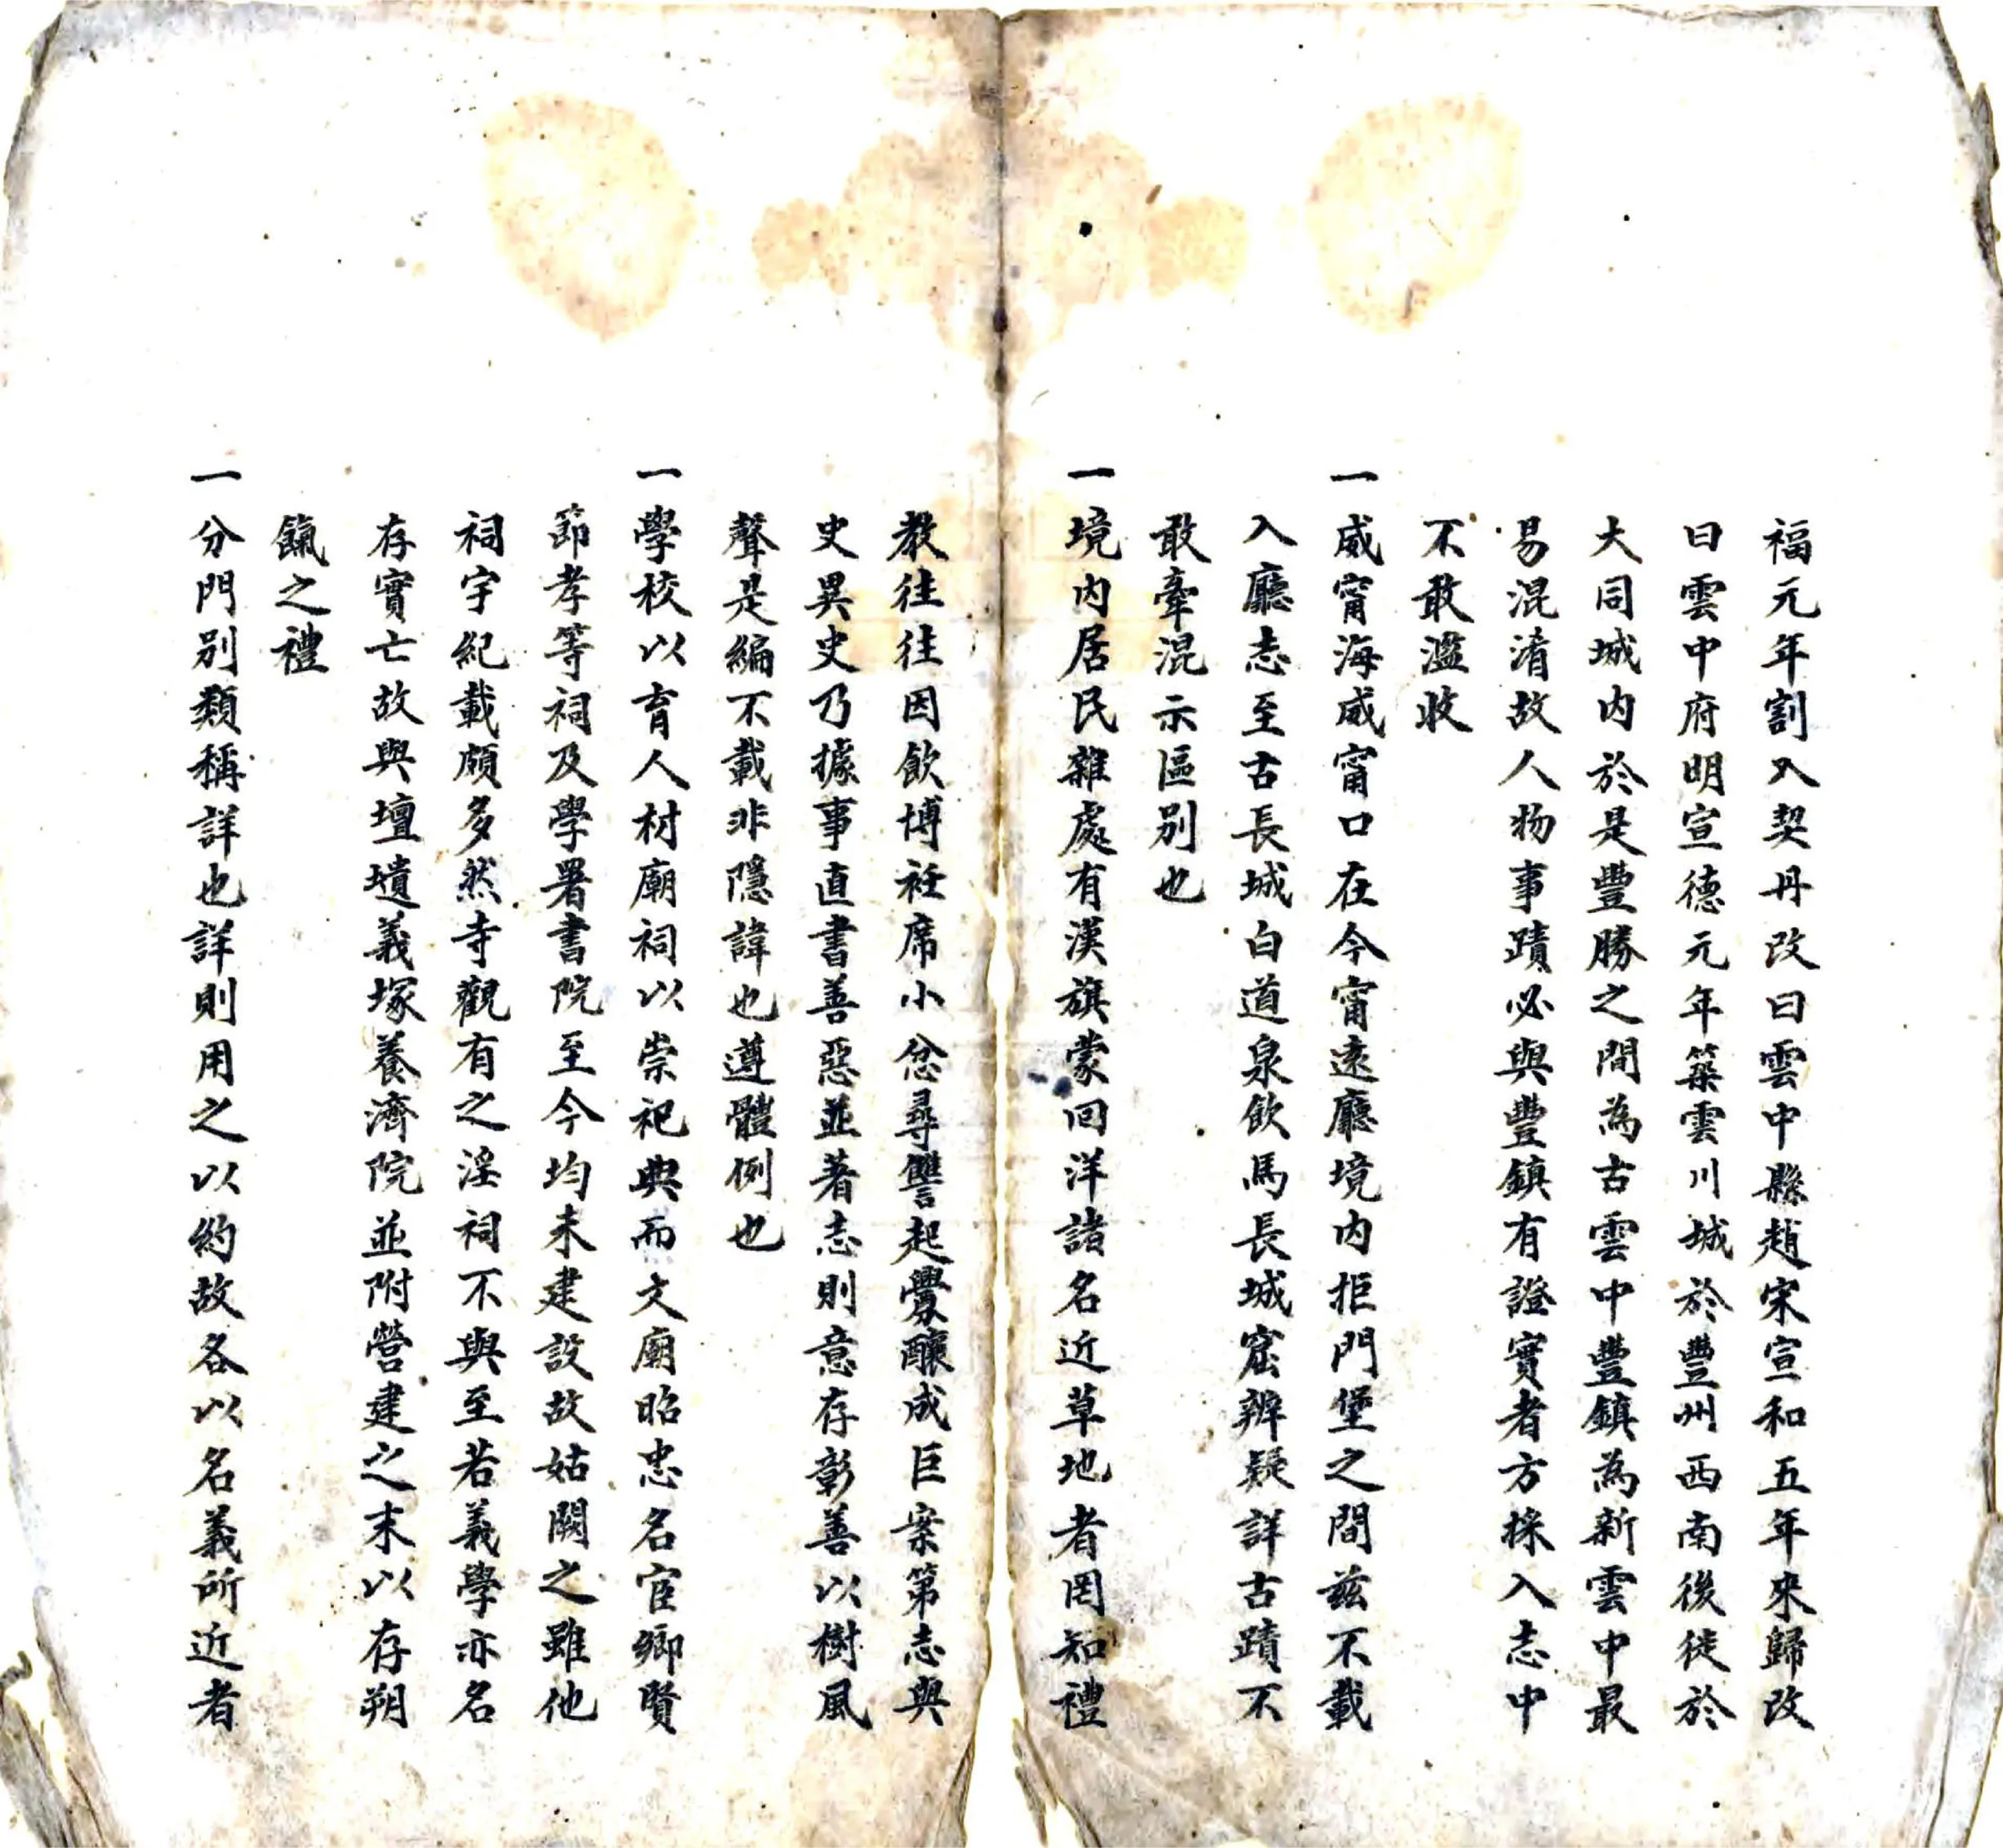 福元年割入契丹改曰雲中縣趙宋宣和五年來歸改
曰雲中府明宣德元年築雲川城於豐州西南後徙於
大同城内於是豐勝之間為古雲中豐鎮為新雲中最
易混淆故人物事蹟必與豐鎮有證實者方採入志中
不敢濫收
一威甯海威甯口在今甯遠廳境内拒門堡之間兹不載
入廳志至古長城白道泉飲馬長城窟辨疑詳古蹟不
敢牽混示區别也
一境内居民雜處有漢旗蒙回洋諸名近草地者罔知禮
教往往因飲博衽席小忿尋讐起釁釀成巨案第志與
史異史乃據事直書善惡並著志則意存彰善以樹風
聲是編不載非隱諱也遵體例也
一學校以育人材廟祠以崇祀典而文廟昭忠名宦鄉賢
節孝等祠及學署書院至今均未建設故姑闕之雖他
祠宇紀載頗多然寺觀有之淫祠不與至若義學亦名
存實亡故與壇壝義塚養濟院並附營建之末以存朔
餼之禮
一分門别類稱詳也詳則用之以約故各以名義所近者